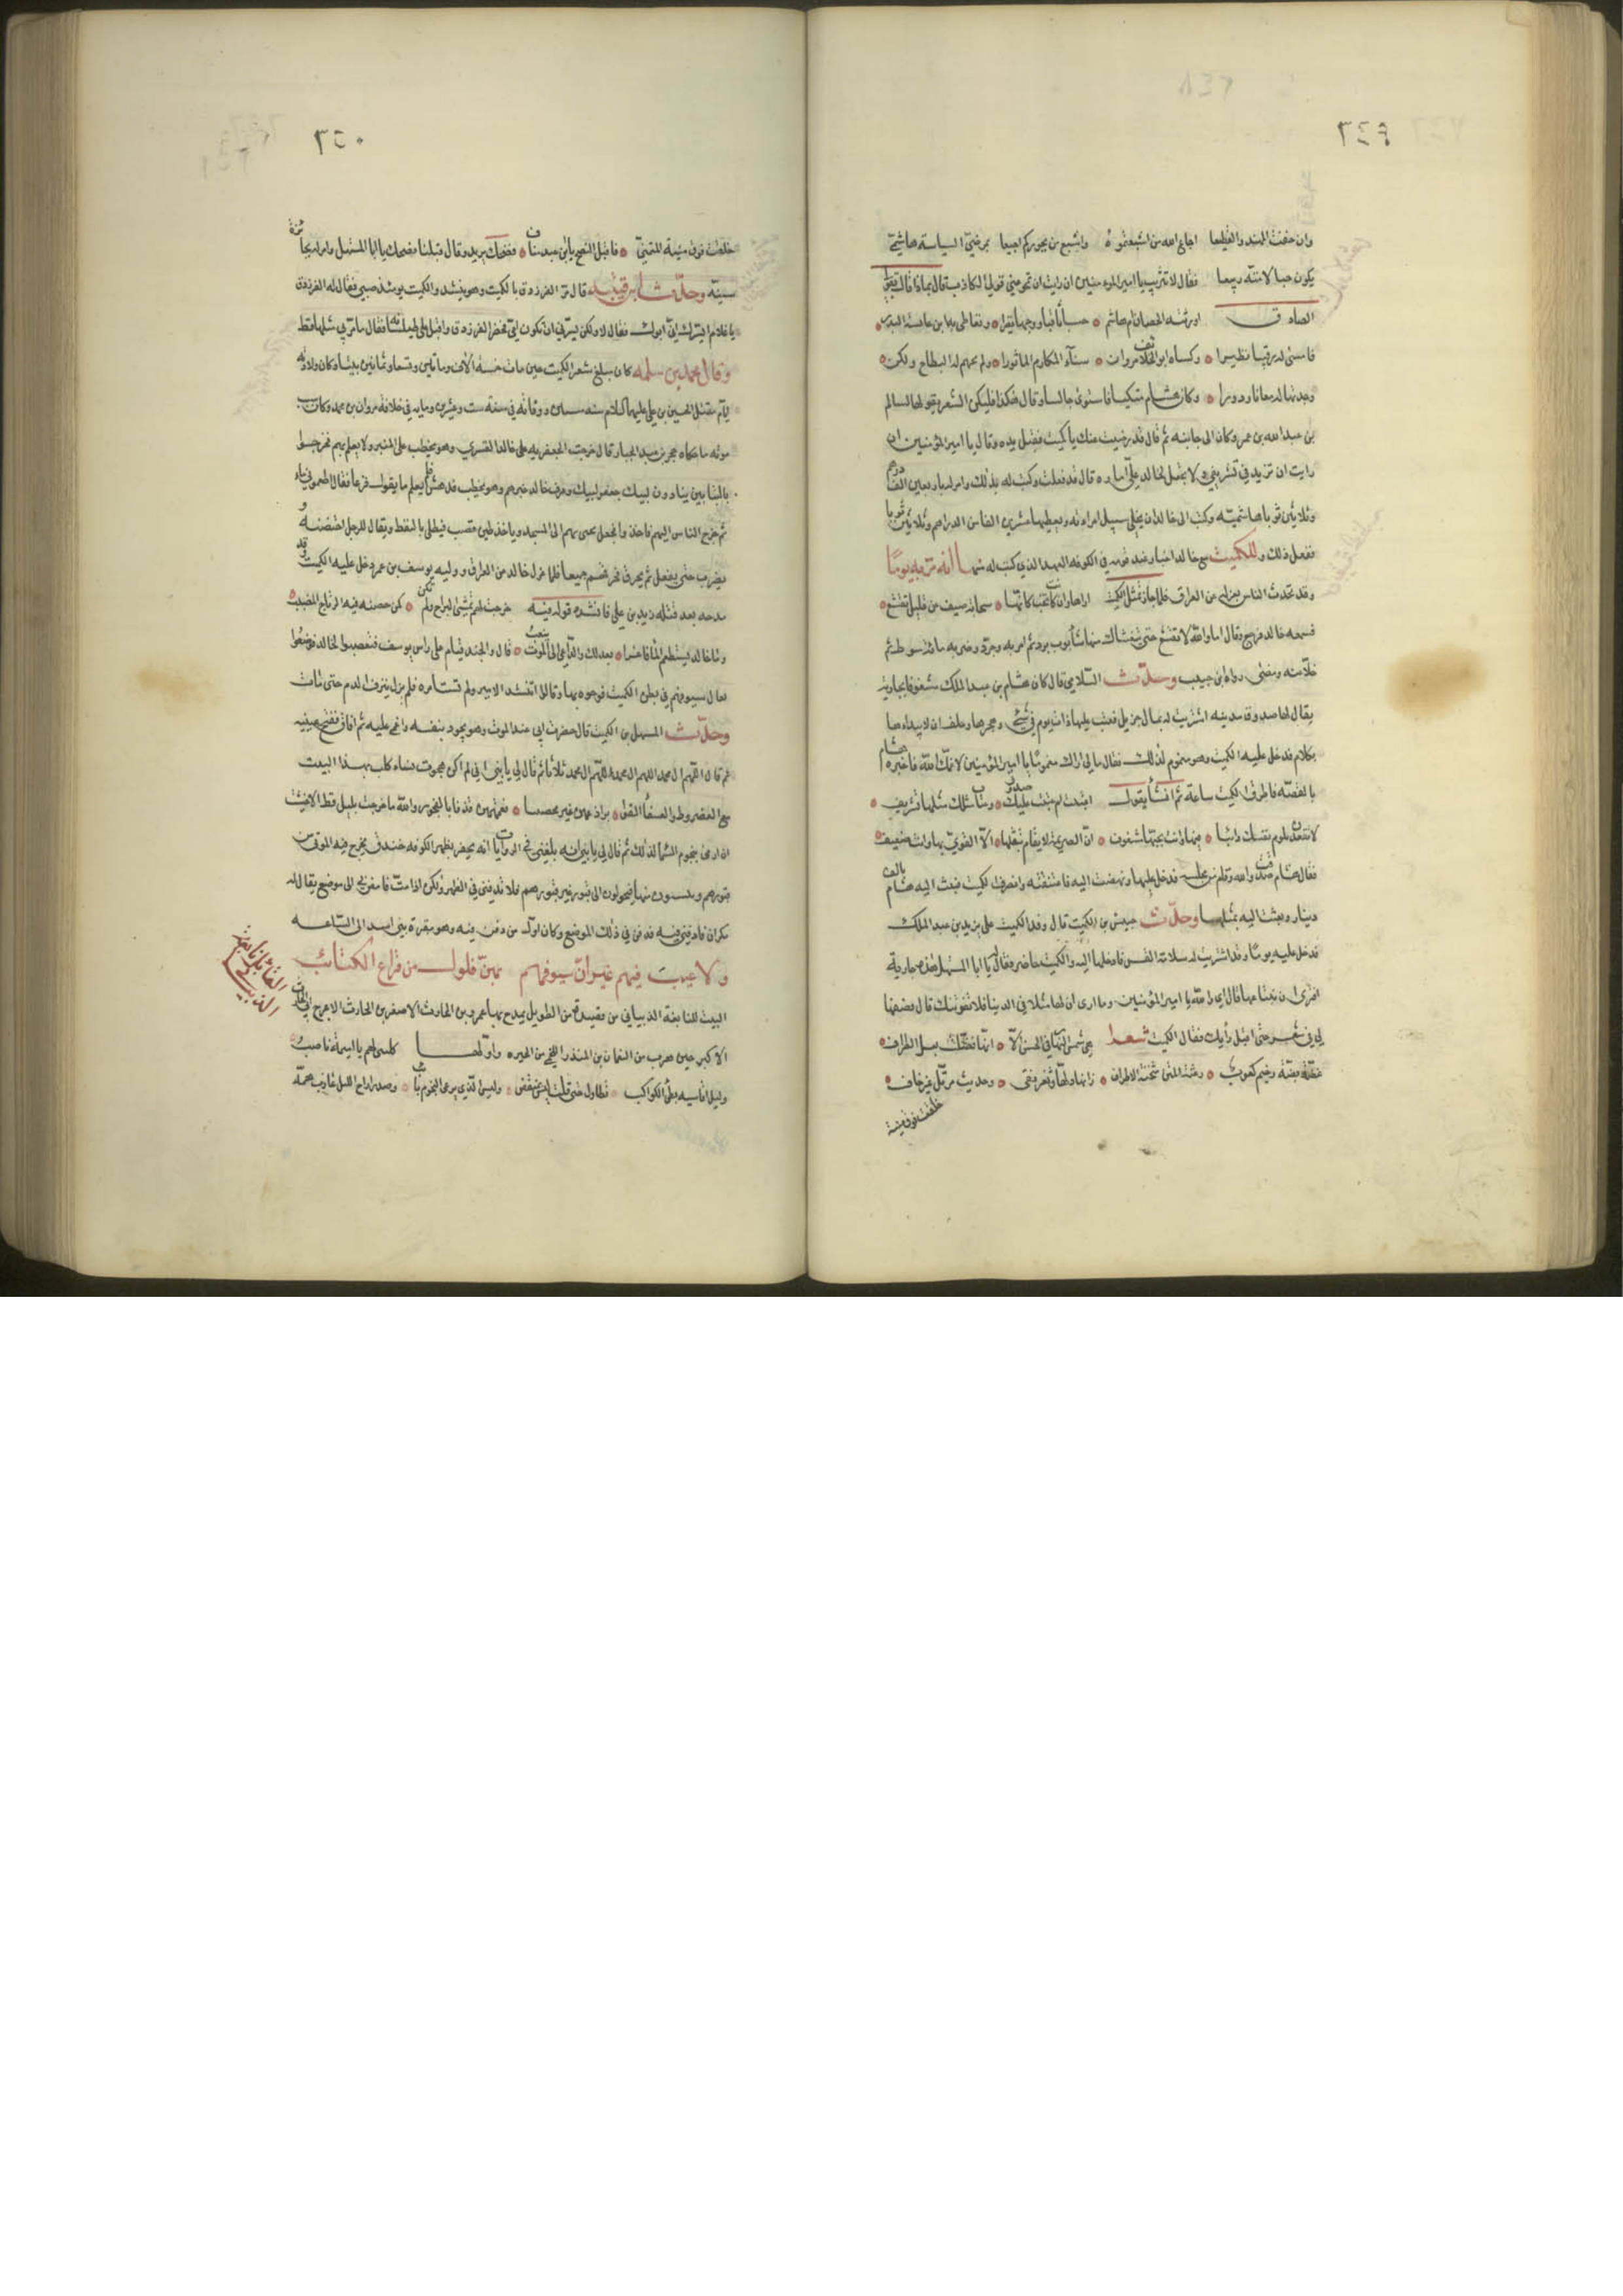 ٣٤٩
وان خفت المهند والقطيعا اجاع الله من اشبعتموه واشبع من بجوركم اجيعا بمرضيّ السياسة هاشميّ
يكون حيا لامته ربيعا فقال لا تثريب يا امير المومنين ان رايت ان تمحو عني قولي الكاذب قال بماذا قال بقولي
الصادق اورثته الحصان ام هشام حسبا ثاقبا ووجها نضيرا وتعاطى به ابن عايشة البدر
فامسى له رقيبا نظيرا وكساه ابو الخلايف مروان سناء المكارم الماثورا ولم تجهم له البطاح ولكن
وجدتها له معانا ودورا وكان هشام متكيا فاستوى جالسا وقال هكذا فليكن الشعر يقولها لسالم
بن عبد الله بن عمر وكان الى جانبه ثم قال قد رضيت عنك يا كميت فقبل يده وقال يا امير المؤمنين ان
رايت ان تزيد في تشريفي ولا تجعل لخالد عليّ اماره قال قد فعلت وكتب له بذلك وامر له باربعين الف درهم
وثلاثين ثوبا هاشمية وكتب الى خالد ان يخلي سبيل امراته ويعطيها عشرين الفا من الدراهم وثلاثين ثوبا
ففعل ذلك وللكميت مع خالد اخبار عند قدومه الكوفه بالعهد الذي كتب له منها انه مر به يوما
وقد تحدث الناس بعزله عن العراق فلما جاز تمثل الكميت اراها وان كانت تحب كانها سحابة صيف عن قليل تقشع
فسمعه خالد فرجع وقال اما والله لا تقشع حتى يغشاك منها شؤبوب برد ثم امر به فجرد وضربه مائة سوط ثم
خلّا عنه ومضى رواه بن حبيب وحدّث السلامي قال كان هشام بن عبد الملك مشغوفا بجارية
يقال لها صدوف مدينيه اشتريت له بمال جزيل فعتب عليها ذات يوم في شيء وهجرها وحلف ان لا يبداءها
بكلام فدخل عليه الكميت وهو مغموم لذلك فقال ما لي اراك مغموما يا امير المؤمنين لا غمّك الله فاخبره هشام
بالقصّة فاطرق الكميت ساعة ثم انشأ يقول اعتبت ام عتبت عليك صدوف وعتاب مثلك مثلها تشريف
لا تقعدن تلوم نفسك دائبا فيها وانت بحبها مشغوف ان الصريمة لا يقوم بثقلها الا القوي بها وانت ضعيف
فقال هشام صدقت والله وقام من مجلسه فدخل عليها ونهضت اليه فاعتنقته وانصرف الكميت فبعث اليه هشام بالف
دينار وبعثت اليه بمثلها وحدّث حبيش بن الكميت قال وفد الكميت على يزيد بن عبد الملك
فدخل عليه يوما وقد اشتريت له سلامة القس فادخلها اليه والكميت حاضر فقال يا ابا المستهل هذه جارية
افترى ان نبتاعها قال اي والله يا امير المؤمنين وما ارى ان لها مثلا في الدنيا فلا تفوتنك قال فصفها
لي في شعر حتى اقبل رأيك فقال الكميت شعرا هي شمس النهار في الحسن الا انها فضلت بفتل الطراف
غضّة بضّة رخيم لعوب وعثة المتن شختة الاطراف زانها دلها وثغر نقي وحديث مرتل غير جاف
خلقت فوق منية
٣٥٠
خلقت فوق منية المتمني فاقبل النصح يا ابن عبد مناف فضحك يزيد وقال قبلنا نصحك يا ابا المستهل وامر له بجائزة
سنيّة وحدّث ابن قتيبه قال مر الفرزدق بالكميت وهو ينشد والكميت يومئذ صبي فقال له الفرزدق
يا غلام ايسرّك اني ابوك فقال لا ولكن يسرّني ان تكون امي فحصر الفرزدق واقبل على جلسائه فقال ما مرّ بي مثلها قط
وقال محمد بن سلمه كان مبلغ شعر الكميت حين مات خمسة الاف ومائتين وتسعا وثمانين بيتا وكان ولادته
ايام مقتل الحسين بن علي عليهما السلام سنه ستين ووفاته في سنة ست وعشرين ومايه في خلافة مروان بن محمد وكان سبب
موته ما حكاه حجر بن عبد الجبار قال خرجت الجعفريه على خالد القسري وهو يخطب على المنبر ولا يعلم بهم فخرجوا
بالتبابين ينادون لبيك جعفر لبيك وعرف خالد خبرهم وهو يخطب فدهش فلم يعلم ما يقول فزعا فقال اطعموني ماء
ثم خرج الناس اليهم فاخذوا فجعل يجيء بهم الى المسجد وياخذ طن قصب فيطلى بالنفط ويقال للرجل احتضنه و
يضرب حتى يفعل ثم يحرق فحرقهم جميعا فلما عزل خالد عن العراق ووليه يوسف بن عمر دخل عليه الكميت وقد
مدحه بعد قتله زيد بن علي فانشده قوله فيه خرجت لهم تمشي البراح ولم تكن كمن حصنه فيه الرتاج المضبب
وما خالد يستطعم الماء فاغرا بعدلك والداعي الى الموت ينعب قال والجند قيام على راس يوسف فتعصبوا لخالد فوضعوا
نعال سيوفهم في بطن الكميت فوجوه بها وقالوا اتنشد الامير ولم تستامره فلم يزل ينزف الدم حتى مات
وحدّث المستهل بن الكميت قال حضرت ابي عند الموت وهو يجود بنفسه واغمي عليه ثم افاق ففتح عينيه
ثم قال اللهم ال محمد اللهم ال محمد اللهم ال محمد ثلاثا ثم قال لي يا بني اني لم اكن هجوت نساء كلب بهذا البيت
مع العضروط والعسفاء القوا براذعهن غير محصنينا فعممتهن قذفا بالفجور والله ما خرجت بليل قط الا خشيت
ان ارمى بنجوم السّماء لذلك ثم قال لي يا بني انه بلغني في الروايات انه يحفر بظهر الكوفه خندق يخرج فيه الموتى من
قبورهم وينبشون منها فيحولون الى قبور غير قبورهم فلا تدفني في الظهر ولكن اذا مت فامض بي الى موضع يقال له
مكران فادفني فيه فدفن في ذلك الموضع وكان اول من دفن فيه وهو مقبرة بني اسد الى الساعه
ولا عيب فيهم غير ان سيوفهم بهن فلول من قراع الكتائب
البيت للنابغة الذبياني من قصيدة من الطويل يمدح بها عمرو بن الحارث الاصغر بن الحارث الاعرج بن الحارث
الاكبر حين هرب من النعمان بن المنذر اللخمي من الحيره واولها كليني لهم يا اميمة ناصب
وليل اقاسيه بطي الكواكب تطاول حتى قلت ليس بمنقض وليس الذي يرعى النجوم بآيب وصدر اراح الليل عازب همّه